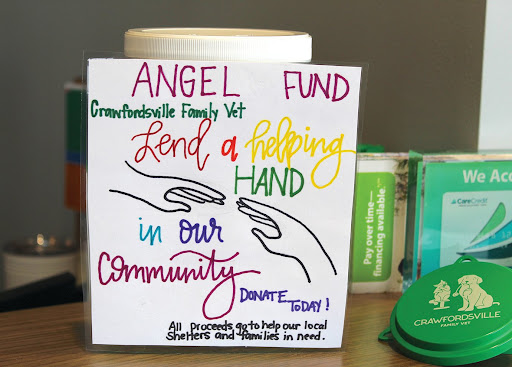 ANGEL FUND
Crawfordsville Family Vet
Lend a helping
HAND
in our
Community
DONATE TODAY!
All proceeds go to help our local
Shelters and families in need.
Pay over time—
financing available.
We Acc
CareCredit
CRAWFORDSVILLE
FAMILY VET